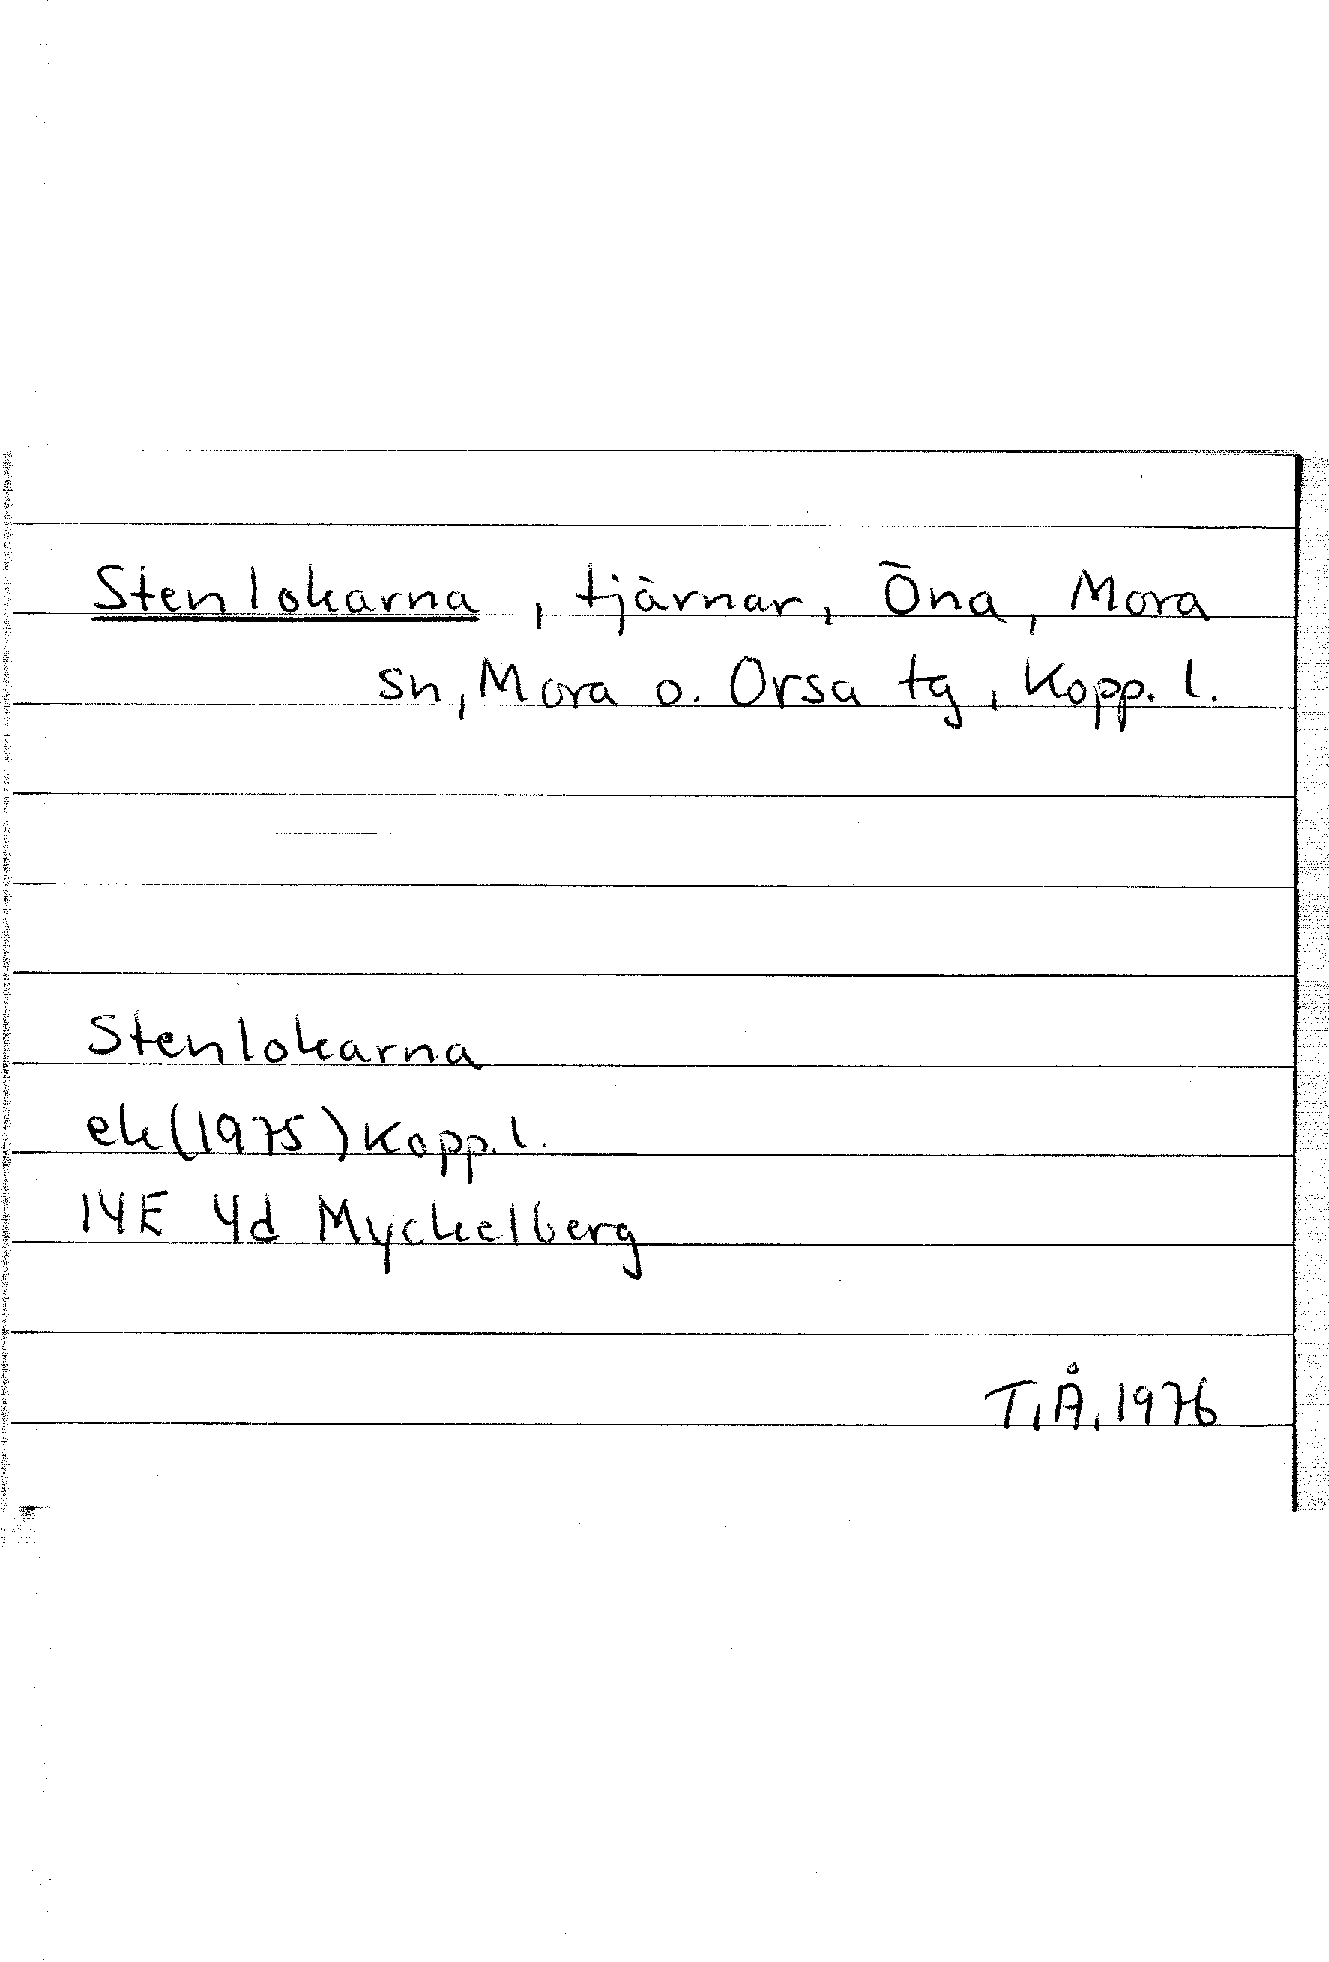 Stenlokarna, tjärnar, Öna, Mora
sn, Mora o. Orsa tg, Kopp. l.
Stenlokarna
ek (1975) Kopp. l.
14E 4d Myckelberg
T.Å. 1976